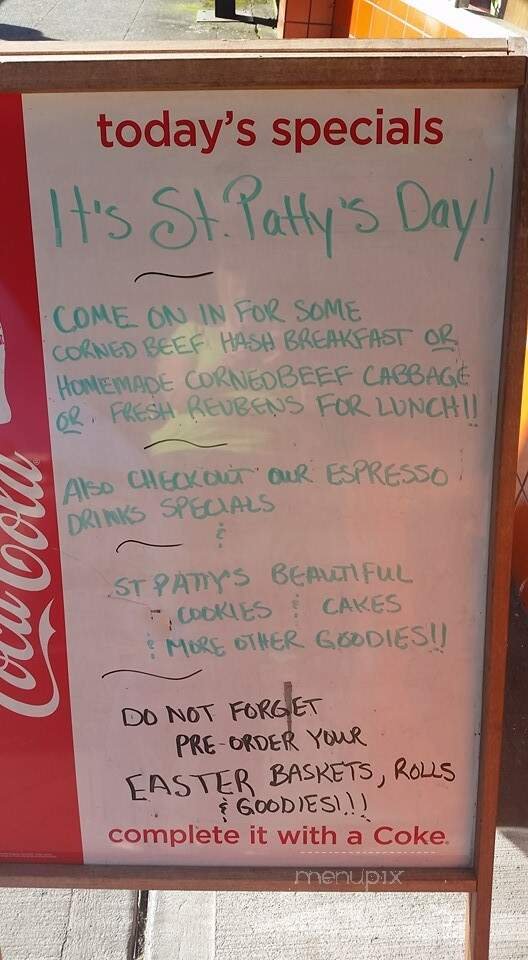 today's specials
It's St. Patty's Day!
COME ON IN FOR SOME
CORNED BEEF HASH BREAKFAST OR
HOMEMADE CORNEDBEEF CABBAGE
OR FRESH REUBENS FOR LUNCH!!
Also CHECKOUT OUR ESPRESSO
DRINKS SPECIALS
&
ST PATTY'S BEAUTIFUL
COOKIES & CAKES
& MORE OTHER GOODIES!!
DO NOT FORGET
PRE-ORDER YOUR
EASTER BASKETS, ROLLS
& GOODIES!!!
complete it with a Coke.
Coca-Cola
menupix